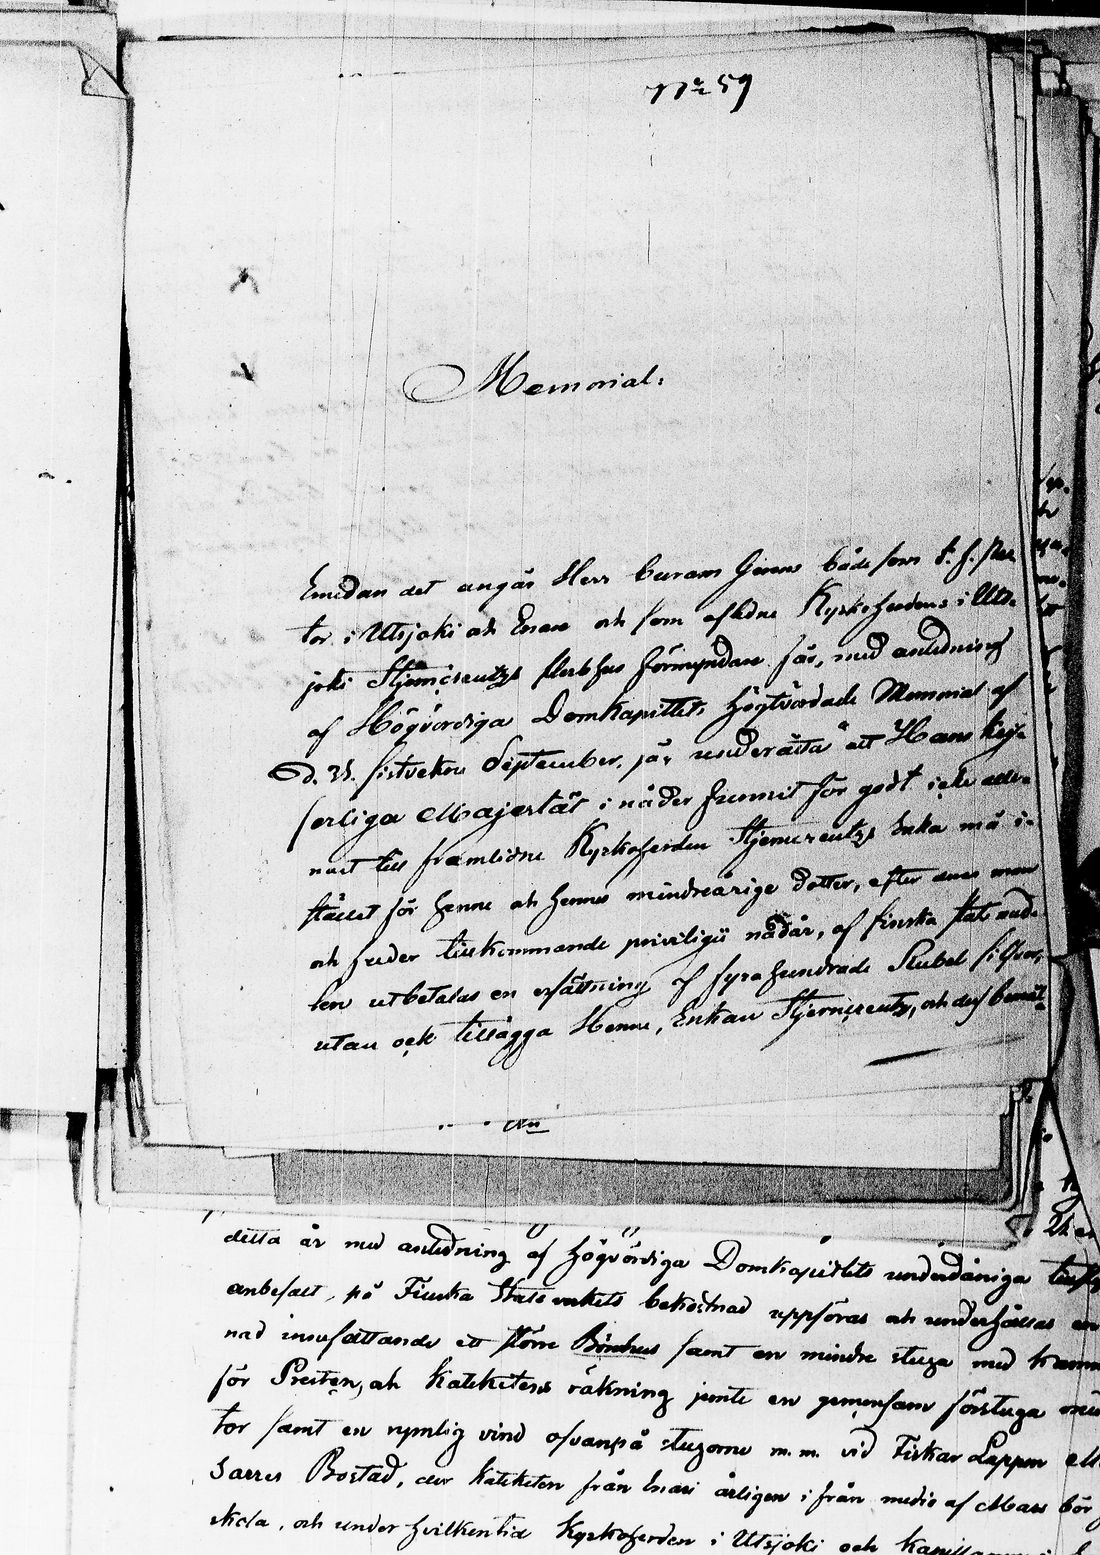 No 59
Memorial:
Emedan det angår Herr Curam Gerens både som t. f. Pas-
tor i Utsjoki och Enare och som aflidne Kyrkoherdens i Uts-
joki Stjerncreutz's Sterbhus förmyndare får, med anledning
af Högvördiga Domkapitlets högtvördade Memorial af
d. sistvekne September, jag underrätta att Hans Kej-
serliga Majestät i nåder funnit för godt icke alle-
nast till framlidne Kyrkoherden Stjerncreutz's Enka må i
stället för henne och hennes mindreårige dotter, efter dess man
och fader tillkommande privilegii nådår, af finska statsmede-
len utbetalas en ersättning af fyrahundrade Rubel silfver,
utan ock tillägga Henne, Enkan Stjerncreutz, och dess bemälte
detta år med anledning af Högvördiga Domkapitlets underdåniga
anbefalt, på Finska Statsverkets bekostnad uppföras och underhållas en
nad innefattande ett större Bönehus samt en mindre stuga med kamm
för Presten, och Kateketens räkning jemte en gemensam förstuga
tor samt en rymlig vind ofvanpå stugorne m. m. vid Fiskar Lappen
Sarres Bostad, der Kateketen från Enari årligen ifrån medio af Mars bör
skola, och under hvilken tid Kyrkoherden i Utsjoki och